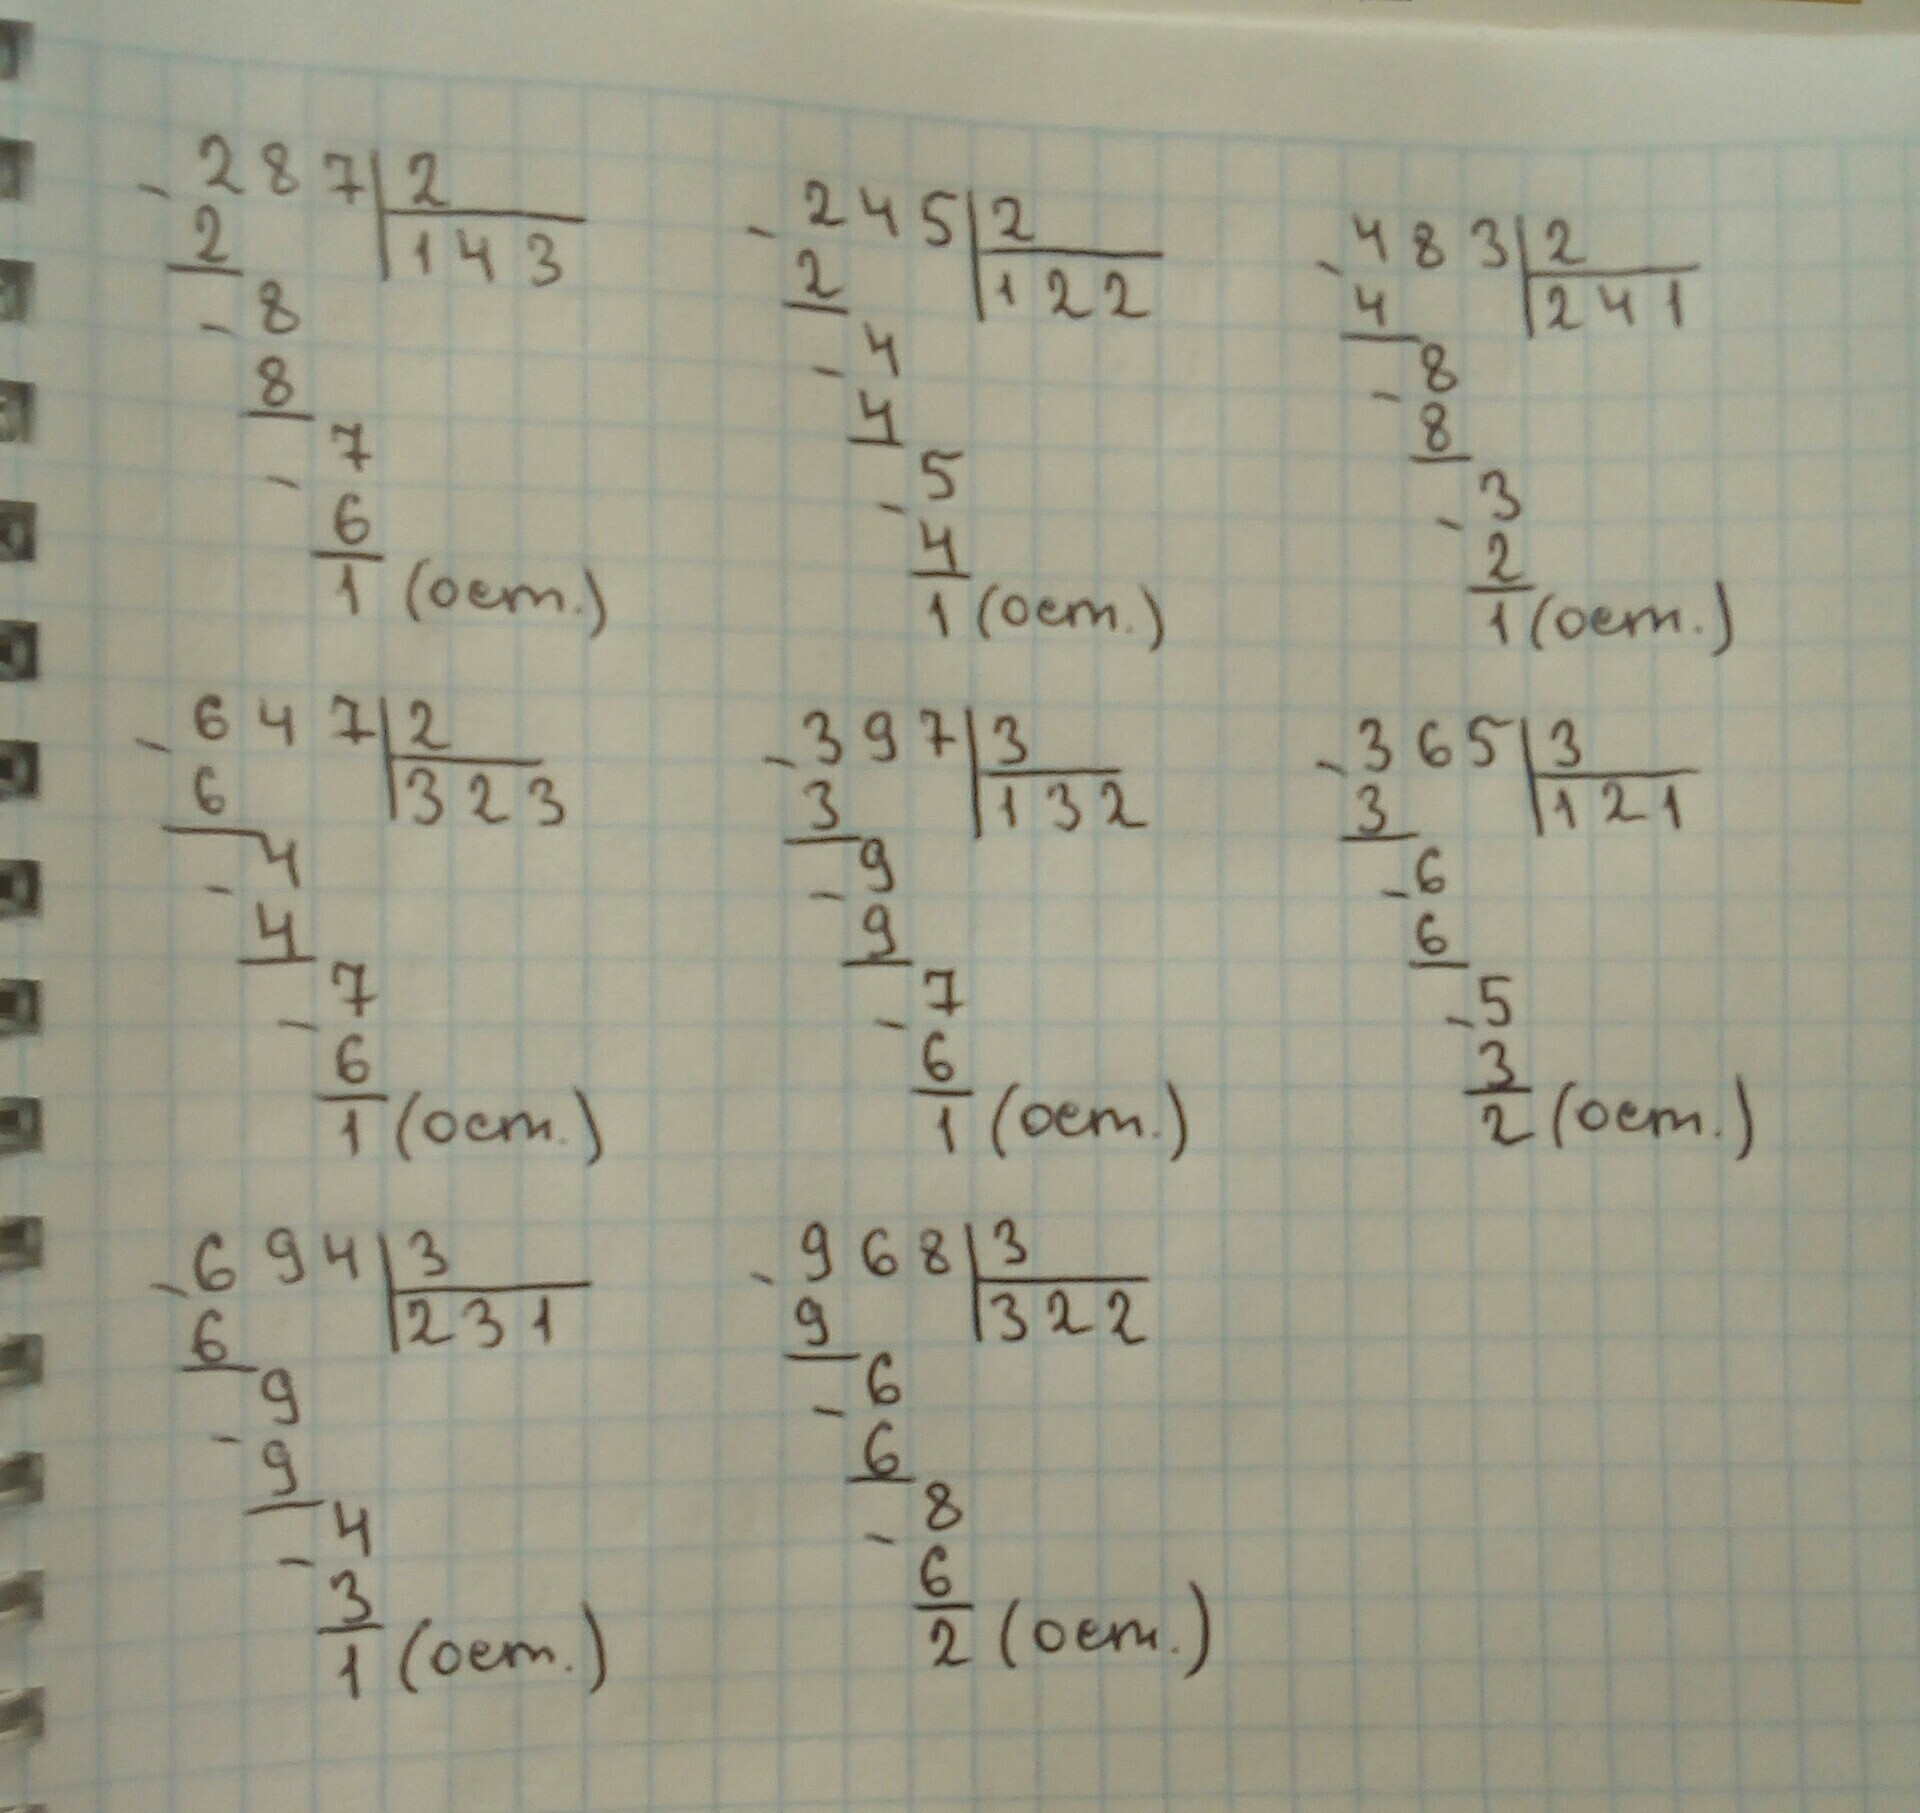 - 2 8 7 | 2
2 | 1 4 3
- 8
8
- 7
6
1 (ост.)
- 2 4 5 | 2
2 | 1 2 2
- 4
4
- 5
4
1 (ост.)
- 4 8 3 | 2
4 | 2 4 1
- 8
8
- 3
2
1 (ост.)
- 6 4 7 | 2
6 | 3 2 3
- 4
4
- 7
6
1 (ост.)
- 3 9 7 | 3
3 | 1 3 2
- 9
9
- 7
6
1 (ост.)
- 3 6 5 | 3
3 | 1 2 1
- 6
6
- 5
3
2 (ост.)
- 6 9 4 | 3
6 | 2 3 1
- 9
9
- 4
3
1 (ост.)
- 9 6 8 | 3
9 | 3 2 2
- 6
6
- 8
6
2 (ост.)